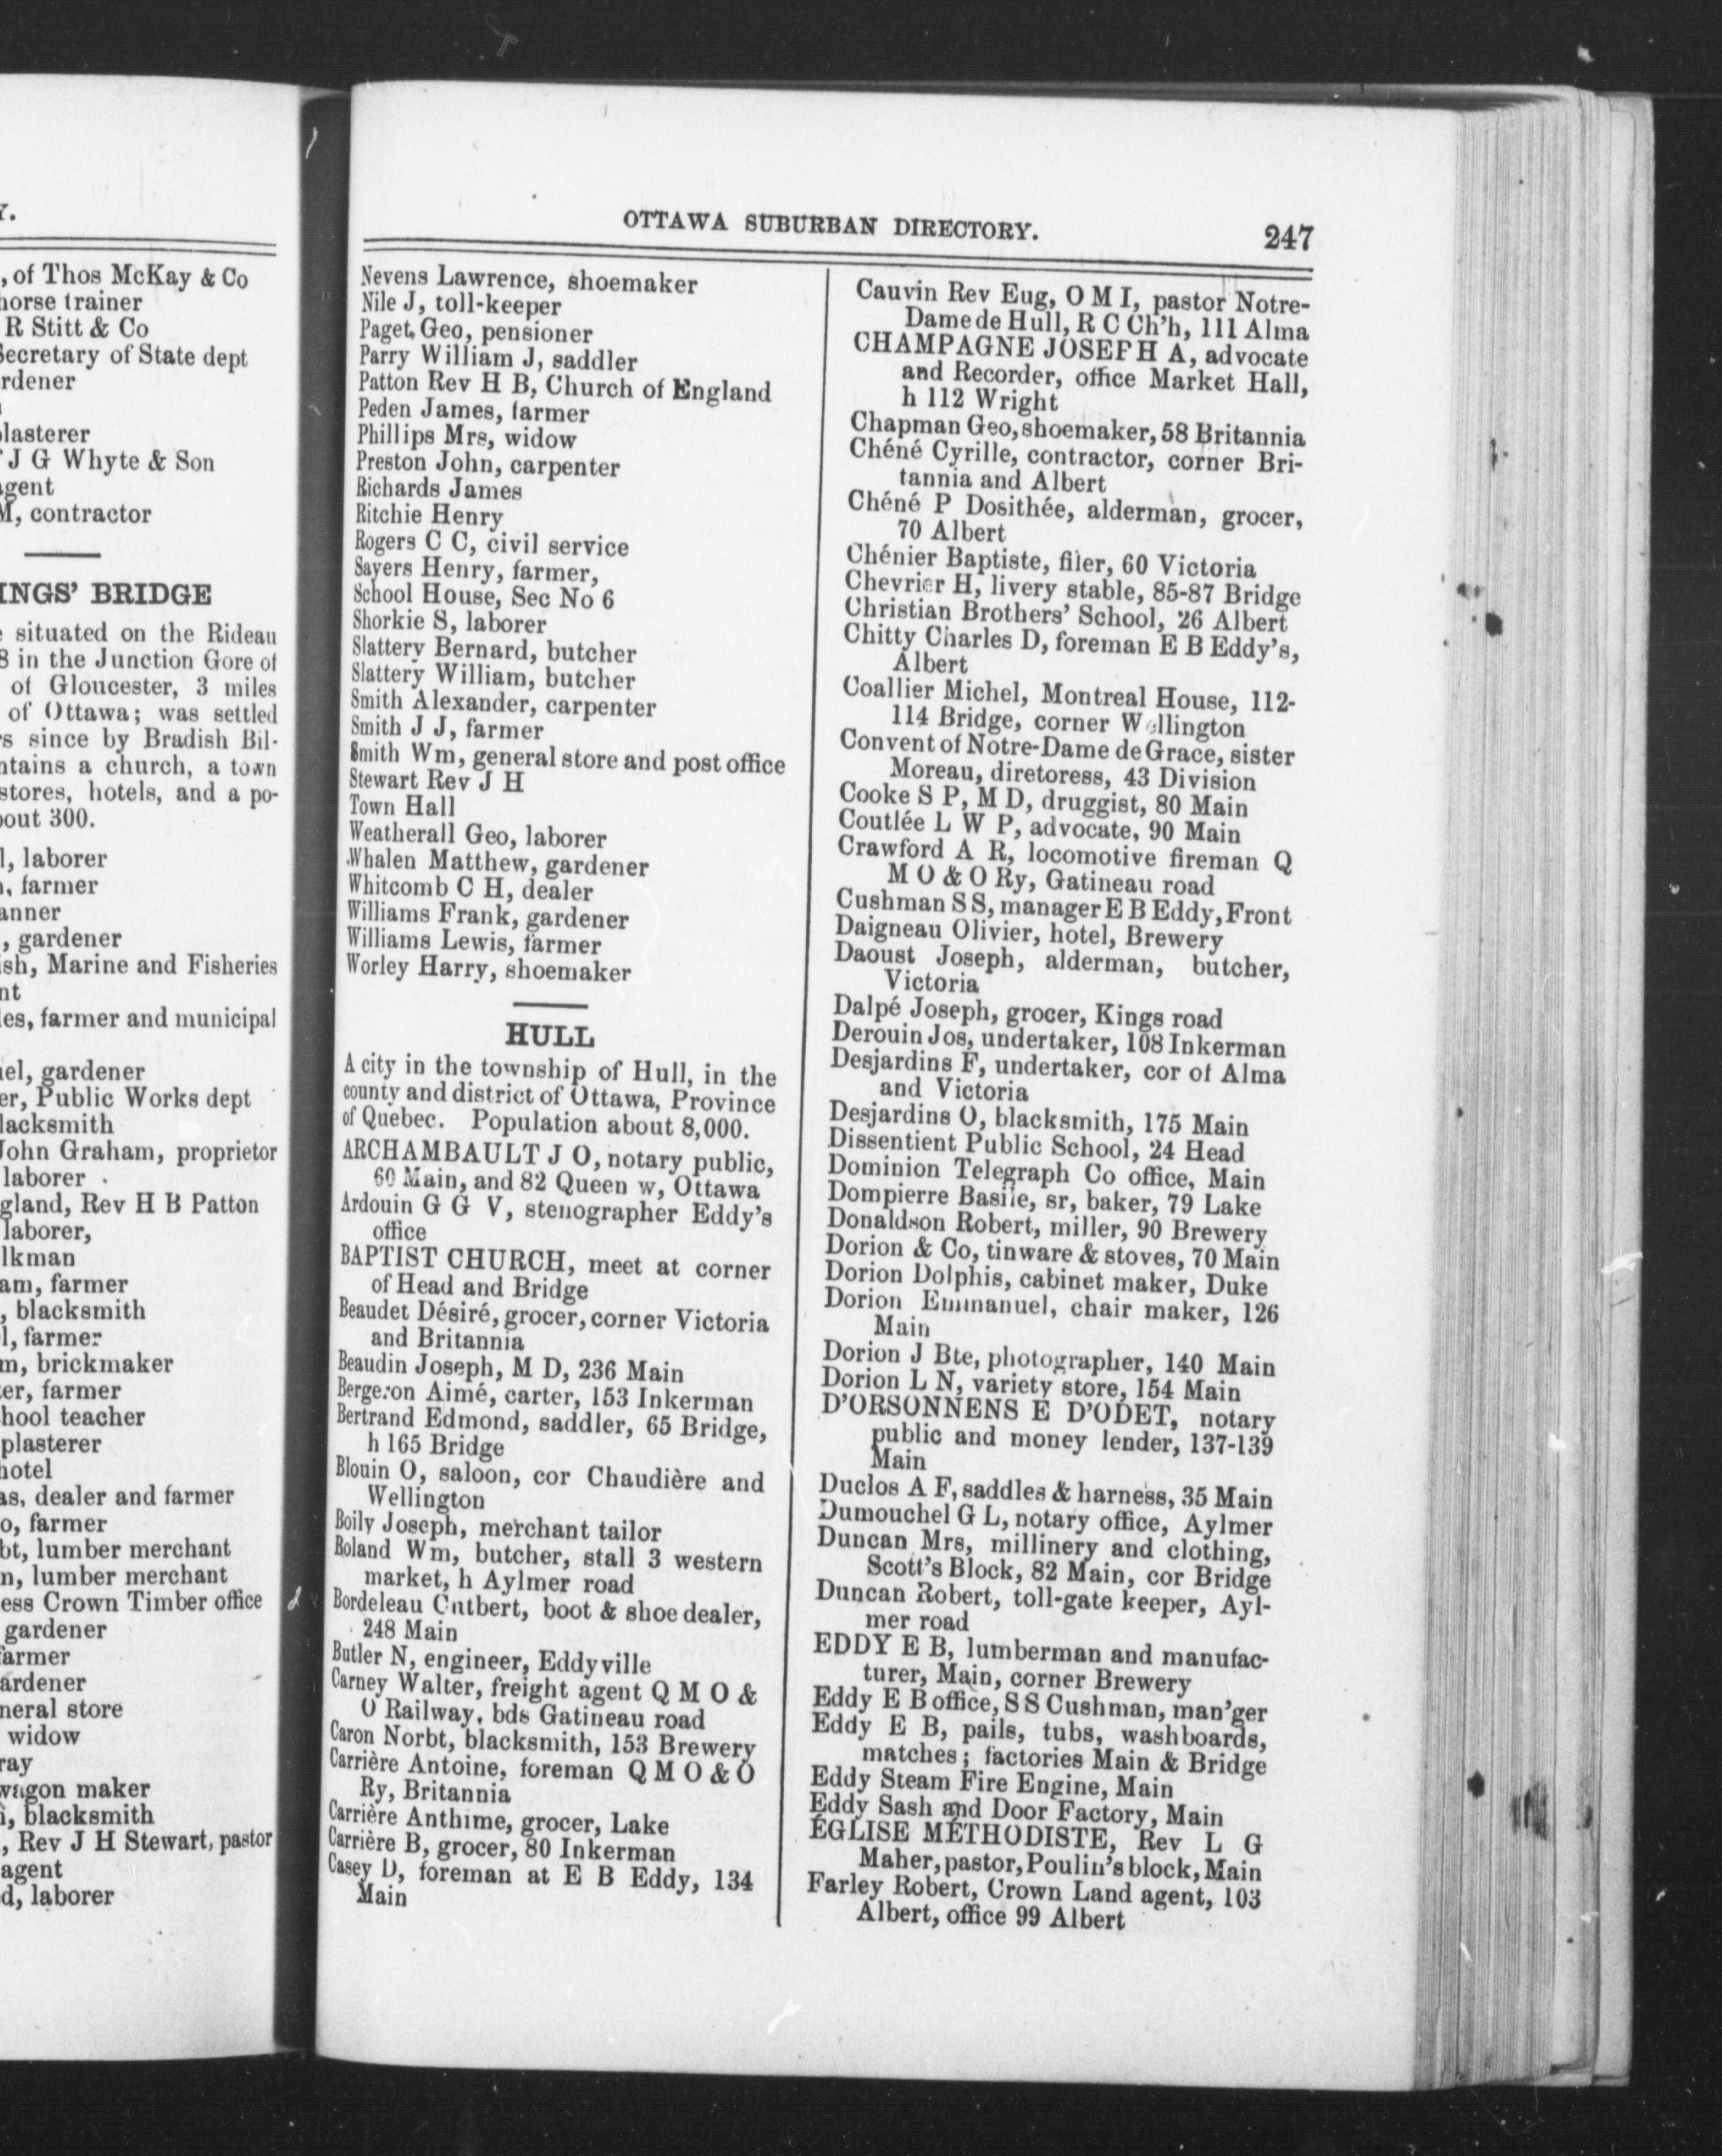 Y.
, of Thos McKay & Co
horse trainer
R Stitt & Co
Secretary of State dept
rdener
plasterer
J G Whyte & Son
agent
M, contractor
INGS' BRIDGE
situated on the Rideau
8 in the Junction Gore of
of Gloucester, 3 miles
of Ottawa; was settled
rs since by Bradish Bil-
ntains a church, a town
stores, hotels, and a po-
bout 300.
l, laborer
, farmer
anner
, gardener
ish, Marine and Fisheries
nt
les, farmer and municipal
uel, gardener
er, Public Works dept
lacksmith
John Graham, proprietor
laborer
gland, Rev H B Patton
laborer,
lkman
am, farmer
, blacksmith
l, farmer
m, brickmaker
ter, farmer
hool teacher
plasterer
hotel
as, dealer and farmer
o, farmer
bt, lumber merchant
n, lumber merchant
ess Crown Timber office
gardener
farmer
ardener
neral store
widow
ray
wagon maker
, blacksmith
, Rev J H Stewart, pastor
agent
d, laborer
OTTAWA SUBURBAN DIRECTORY. 247
Nevens Lawrence, shoemaker
Nile J, toll-keeper
Paget, Geo, pensioner
Parry William J, saddler
Patton Rev H B, Church of England
Peden James, farmer
Phillips Mrs, widow
Preston John, carpenter
Richards James
Ritchie Henry
Rogers C C, civil service
Sayers Henry, farmer,
School House, Sec No 6
Shorkie S, laborer
Slattery Bernard, butcher
Slattery William, butcher
Smith Alexander, carpenter
Smith J J, farmer
Smith Wm, general store and post office
Stewart Rev J H
Town Hall
Weatherall Geo, laborer
Whalen Matthew, gardener
Whitcomb C H, dealer
Williams Frank, gardener
Williams Lewis, farmer
Worley Harry, shoemaker
HULL
A city in the township of Hull, in the
county and district of Ottawa, Province
of Quebec. Population about 8,000.
ARCHAMBAULT J O, notary public,
60 Main, and 82 Queen w, Ottawa
Ardouin G G V, stenographer Eddy's
office
BAPTIST CHURCH, meet at corner
of Head and Bridge
Beaudet Désiré, grocer, corner Victoria
and Britannia
Beaudin Joseph, M D, 236 Main
Bergeron Aimé, carter, 153 Inkerman
Bertrand Edmond, saddler, 65 Bridge,
h 165 Bridge
Blouin O, saloon, cor Chaudière and
Wellington
Boily Joseph, merchant tailor
Boland Wm, butcher, stall 3 western
market, h Aylmer road
Bordeleau Cutbert, boot & shoe dealer,
248 Main
Butler N, engineer, Eddyville
Carney Walter, freight agent Q M O &
O Railway, bds Gatineau road
Caron Norbt, blacksmith, 153 Brewery
Carrière Antoine, foreman Q M O & O
Ry, Britannia
Carrière Anthime, grocer, Lake
Carrière B, grocer, 80 Inkerman
Casey D, foreman at E B Eddy, 134
Main
Cauvin Rev Eug, O M I, pastor Notre-
Dame de Hull, R C Ch'h, 111 Alma
CHAMPAGNE JOSEPH A, advocate
and Recorder, office Market Hall,
h 112 Wright
Chapman Geo, shoemaker, 58 Britannia
Chéné Cyrille, contractor, corner Bri-
tannia and Albert
Chéné P Dosithée, alderman, grocer,
70 Albert
Chénier Baptiste, filer, 60 Victoria
Chevrier H, livery stable, 85-87 Bridge
Christian Brothers' School, 26 Albert
Chitty Charles D, foreman E B Eddy's,
Albert
Coallier Michel, Montreal House, 112-
114 Bridge, corner Wellington
Convent of Notre-Dame de Grace, sister
Moreau, diretoress, 43 Division
Cooke S P, M D, druggist, 80 Main
Coutlée L W P, advocate, 90 Main
Crawford A R, locomotive fireman Q
M O & O Ry, Gatineau road
Cushman S S, manager E B Eddy, Front
Daigneau Olivier, hotel, Brewery
Daoust Joseph, alderman, butcher,
Victoria
Dalpé Joseph, grocer, Kings road
Derouin Jos, undertaker, 108 Inkerman
Desjardins F, undertaker, cor of Alma
and Victoria
Desjardins O, blacksmith, 175 Main
Dissentient Public School, 24 Head
Dominion Telegraph Co office, Main
Dompierre Basile, sr, baker, 79 Lake
Donaldson Robert, miller, 90 Brewery
Dorion & Co, tinware & stoves, 70 Main
Dorion Dolphis, cabinet maker, Duke
Dorion Emmanuel, chair maker, 126
Main
Dorion J Bte, photographer, 140 Main
Dorion L N, variety store, 154 Main
D'ORSONNENS E D'ODET, notary
public and money lender, 137-139
Main
Duclos A F, saddles & harness, 35 Main
Dumouchel G L, notary office, Aylmer
Duncan Mrs, millinery and clothing,
Scott's Block, 82 Main, cor Bridge
Duncan Robert, toll-gate keeper, Ayl-
mer road
EDDY E B, lumberman and manufac-
turer, Main, corner Brewery
Eddy E B office, S S Cushman, man'ger
Eddy E B, pails, tubs, washboards,
matches; factories Main & Bridge
Eddy Steam Fire Engine, Main
Eddy Sash and Door Factory, Main
ÉGLISE MÉTHODISTE, Rev L G
Maher, pastor, Poulin's block, Main
Farley Robert, Crown Land agent, 103
Albert, office 99 Albert